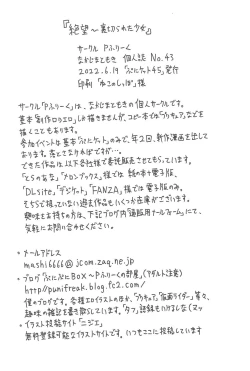 『絶望～裏切られた少女』
サークル Pふりーく
なかじまともき 個人誌 No.43
2022.6.19 「ぷにケット45」発行
印刷 「ねこのしっぽ」様
サークル「Pふりーく」は、なかじまともきの個人サークルです。
基本「創作ロリエロ」しか描きませんが、コピー本では「プリキュア」などを
描くこともあります。
参加イベントは基本「ぷにケット」のみで、年2回、新作漫画を出して
おります。落としてなければですが…。
できた作品は以下各社様で委託販売させてもらっています。
「とらのあな」「メロンブックス」様では紙の本+電子版、
「DLsite」「デジケット」「FANZA」様では電子版のみ。
もちろん残っている過去作品もいくつか在庫がございます。
興味をお持ちの方は、下記ブログ内「通販用メールフォーム」にて、
気軽にお問い合せください。
・メールアドレス
mashi6666@jcom.zaq.ne.jp
・ブログ「ぷにぷにBOX～Pふりーくの部屋」(アダルト注意)
http://punifreak.blog.fc2.com/
僕のブログです。各種エロイラストのほか、「プリキュア」「仮面ライダー」等々、
趣味の雑記を書き散らしています。「タフ」語録も
・イラスト投稿サイト「ニジエ」
無料登録可能なイラストサイトです。いつもここに投稿しています